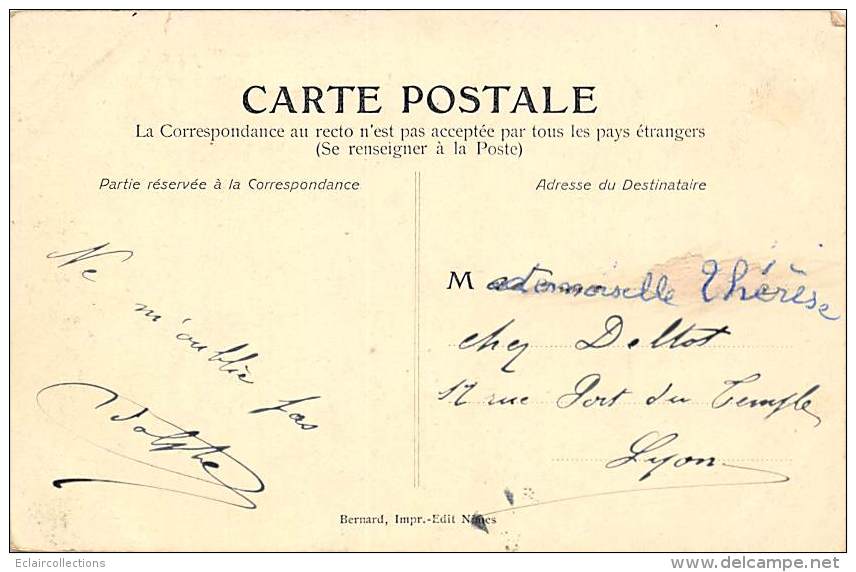 CARTE POSTALE
La Correspondance au recto n'est pas acceptée par tous les pays étrangers
(Se renseigner à la Poste)
Partie réservée à la Correspondance
Adresse du Destinataire
Ne
m'oublie
pas
Mademoiselle Thérèse
chez Deltot
17 rue Port du Temple
Lyon
Bernard, Impr.-Edit Nîmes
Eclaircollections
delcampe.net